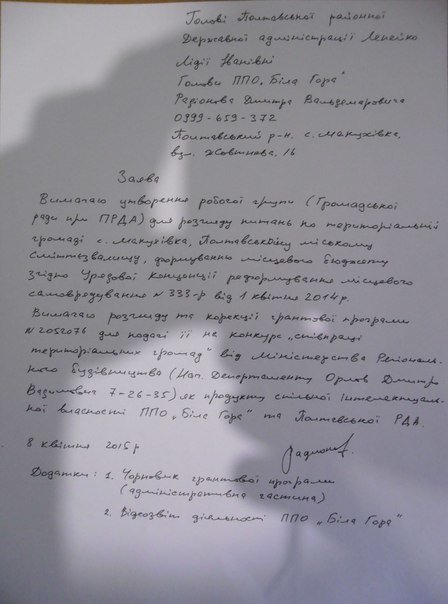 Голові Полтавської районної
Державної адміністрації Ленейко
Лідії Іванівні
Голови ППО „Біла Гора"
Радіонова Дмитра Вальдемаровича
0999-659-372
Полтавський р-н. с. Макухівка,
вул. Жовтнева, 16
Заява
Вимагаю утворення робочої групи (Громадської
ради при ПРДА) для розгляду питань по територіальній
громаді с. Макухівка, Полтавському міському
сміттєзвалищу, формуванню місцевого бюджету
згідно Урядової концепції реформування місцевого
самоврядування № 333-р від 1 квітня 2014 р.
Вимагаю розгляду та корекції грантової програми
№ 2052076 для подачі її на конкурс „співпраці
територіальних громад" від Міністерства Регіональ-
ного будівництва (Нач. Департаменту Орлов Дмитр
Вадимович 7-26-35) як продукту спільної інтелектуаль-
ної власності ППО „Біла Гора" та Полтавської РДА.
8 квітня 2015 р
Додатки: 1. Чорновик грантової програми
(адміністративна частина)
2. Відеозвіт діяльності ППО „Біла Гора"